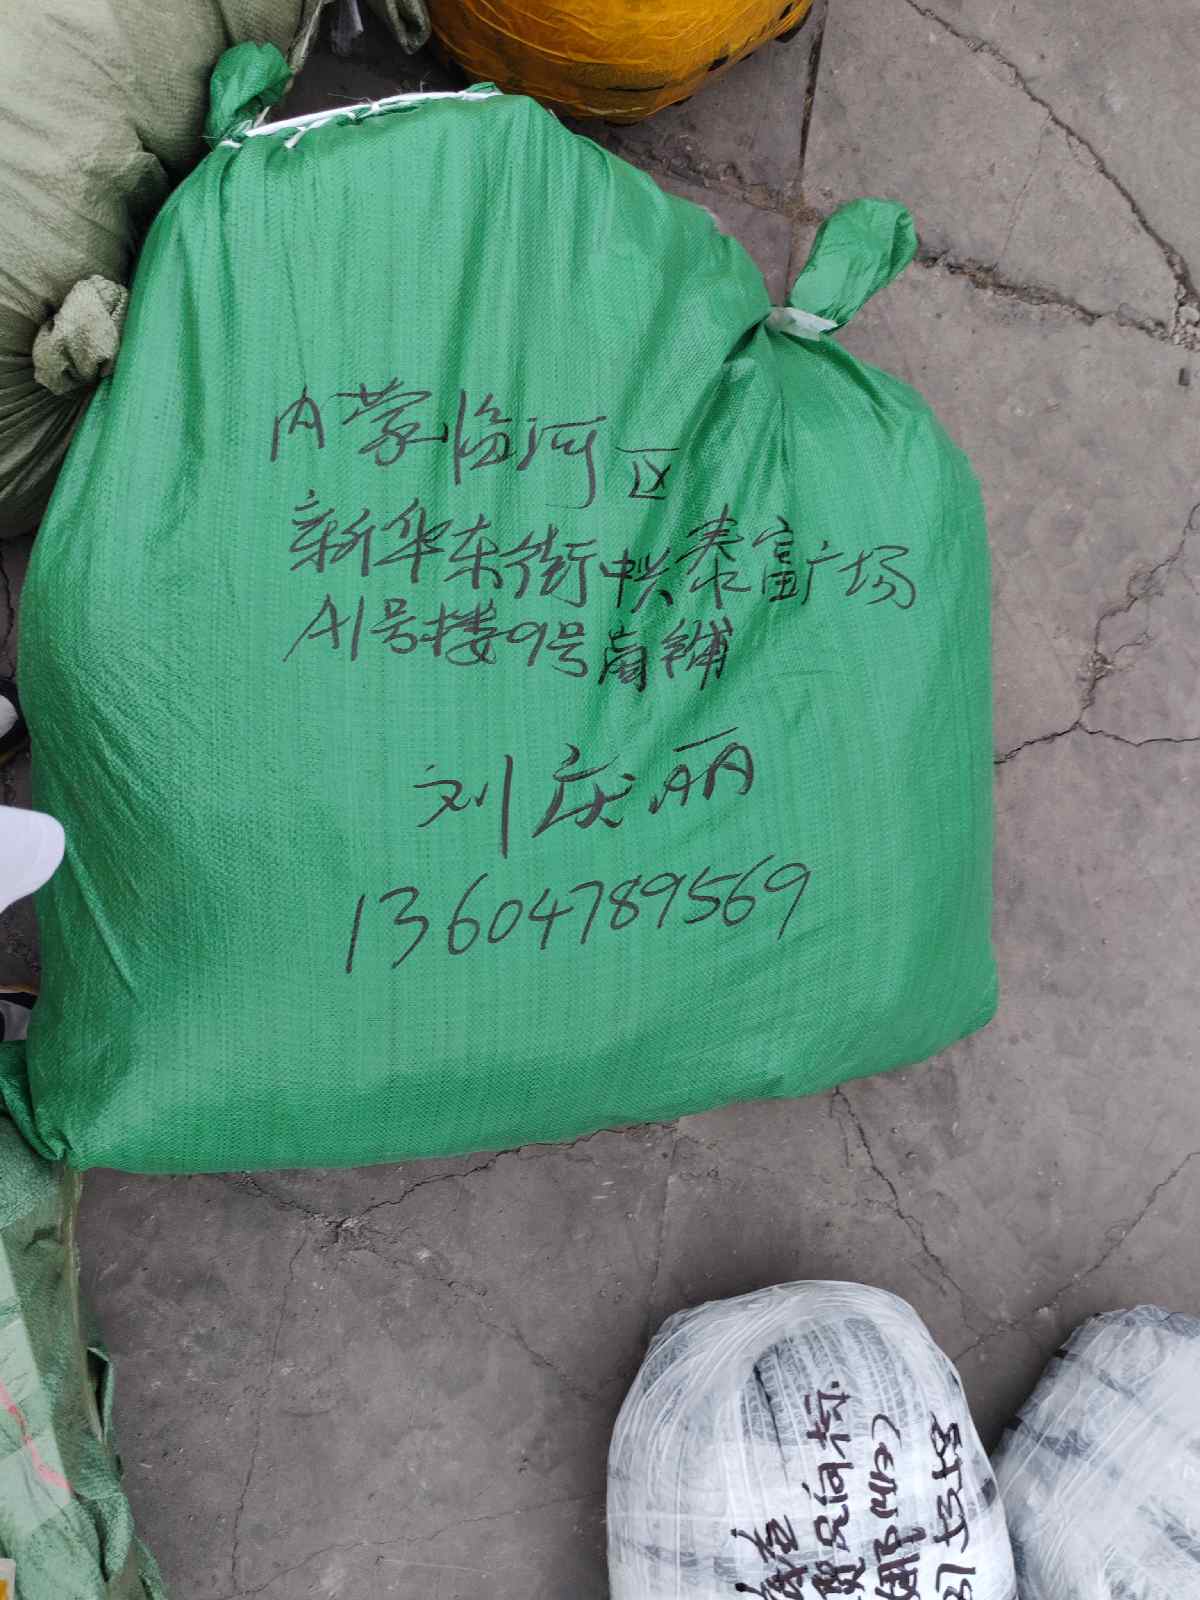 内蒙临河区
新华东街中兴泰富广场
A1号楼9号商铺
刘庆丽
13604789569